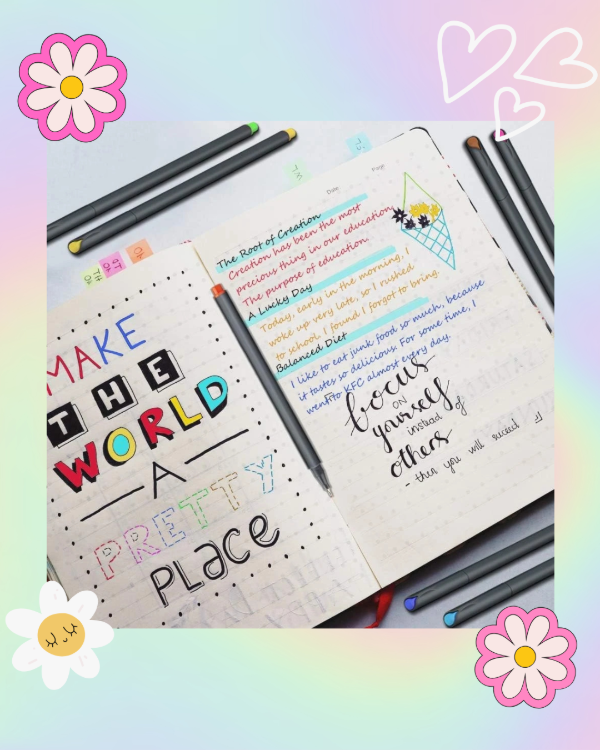 MAKE
THE
WORLD
A
PRETTY
PLACE
Date
Page
The Root of Creation
Creation has been the most
precious thing in our education.
The purpose of education.
A Lucky Day
Today, early in the morning, I
woke up very late, so I rushed
to school. I found I forgot to bring.
Balanced Diet
I like to eat junk food so much, because
it tastes so delicious. For some time, I
went to KFC almost every day.
focus
ON
yourself
instead of
others
- then you will succeed